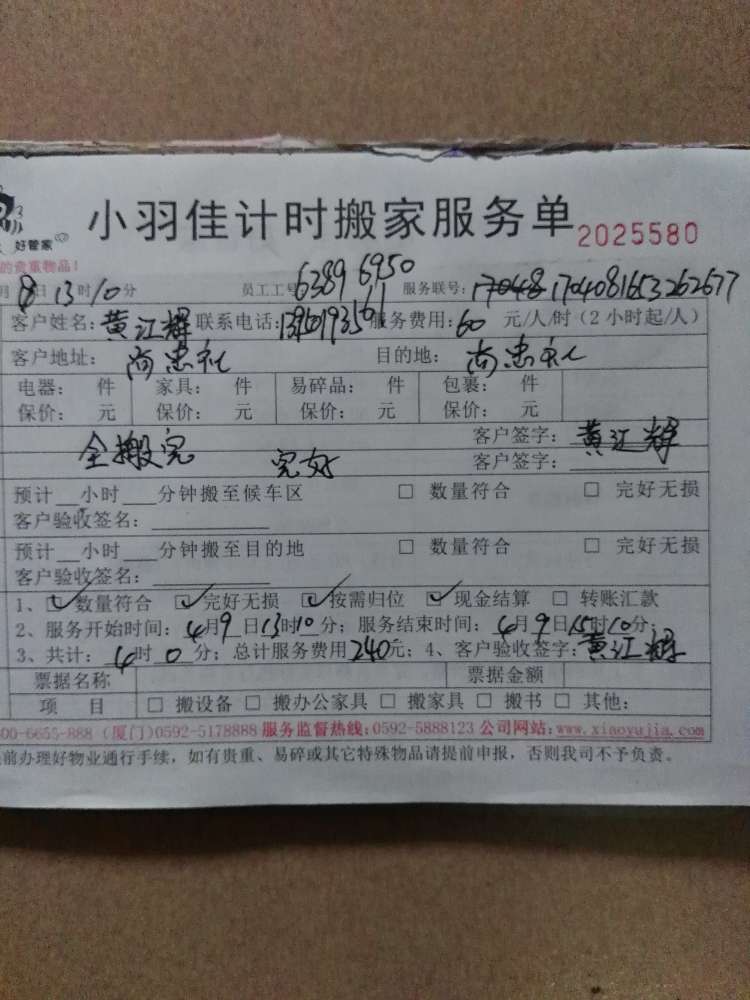 好管家
小羽佳计时搬家服务单 2025580
的贵重物品!
月8日13时10分 员工工号 6389 6950 服务联号: 17048 170408165326267
客户姓名: 黄江辉 联系电话: 服务费用: 60 元/人/时 (2小时起/人)
客户地址: 尚忠礼 目的地: 尚忠礼
电器: 件 家具: 件 易碎品: 件 包裹: 件
保价: 元 保价: 元 保价: 元 保价: 元
全搬完 完好 客户签字: 黄江辉
客户签字:
预计__小时___分钟搬至候车区 □ 数量符合 □ 完好无损
客户验收签名:
预计__小时___分钟搬至目的地 □ 数量符合 □ 完好无损
客户验收签名:
1、☑数量符合 ☑完好无损 ☑按需归位 ☑现金结算 □ 转账汇款
2、服务开始时间: 4月9日13时10分; 服务结束时间: 4月9日15时10分;
3、共计: 4时0分; 总计服务费用240元; 4、客户验收签字: 黄江辉
票据名称 票据金额
项 目 □ 搬设备 □ 搬办公家具 □ 搬家具 □ 搬书 □ 其他:
00-6655-888 (厦门)0592-5178888 服务监督热线:0592-5888123 公司网站:www.xiaoyujia.com
前办理好物业通行手续, 如有贵重、易碎或其它特殊物品请提前申报, 否则我司不予负责。